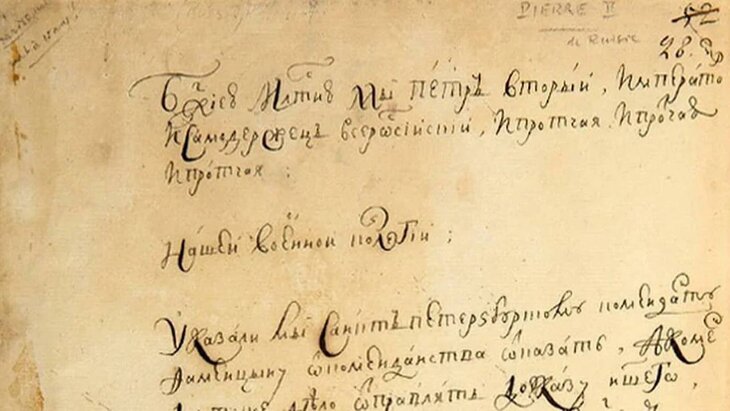 PIERRE II
de Russie
52
28.
Бжиею Млтию Мы ПЕТРЪ Вторыи, Императо
И Самодержецъ всеросиискии, И протчая И протчая
И протчая:
Нашеи Военнои колегии;
Указали мы Санктъпетерзбургскому коменданту
ѿ комендантства ѿказать,
дело ѿправлять до указу